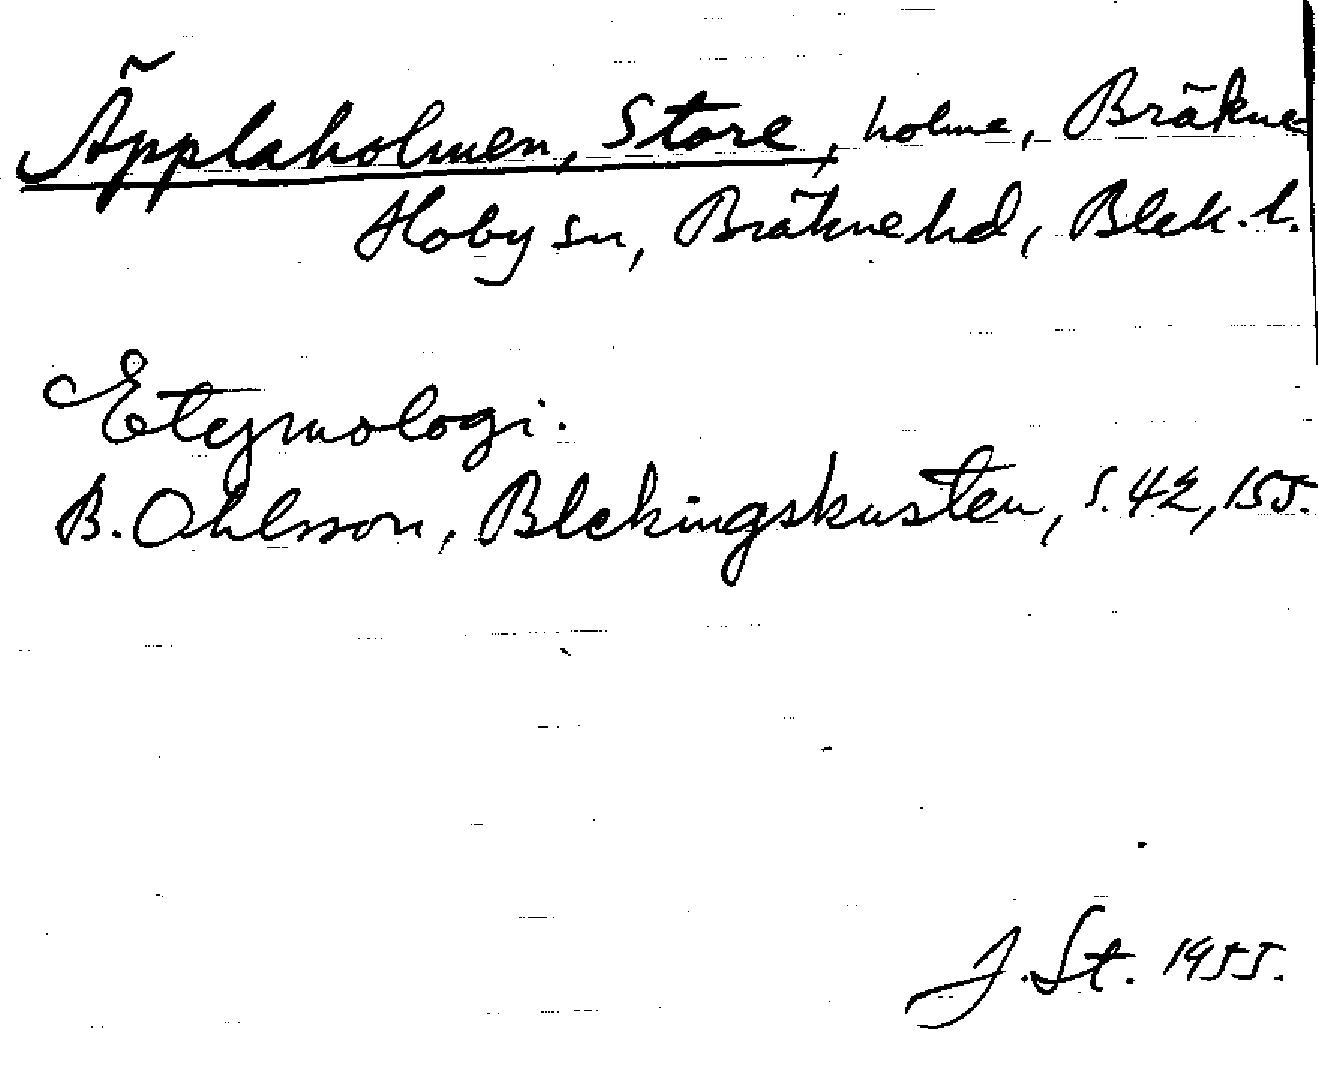 Äpplaholmen, Store, holme, Bräkne-
Hoby sn, Bräkne hd, Blek. l.
Etymologi.
B. Ohlsson, Blekingskusten, s. 42, 155.
J. St. 1955.